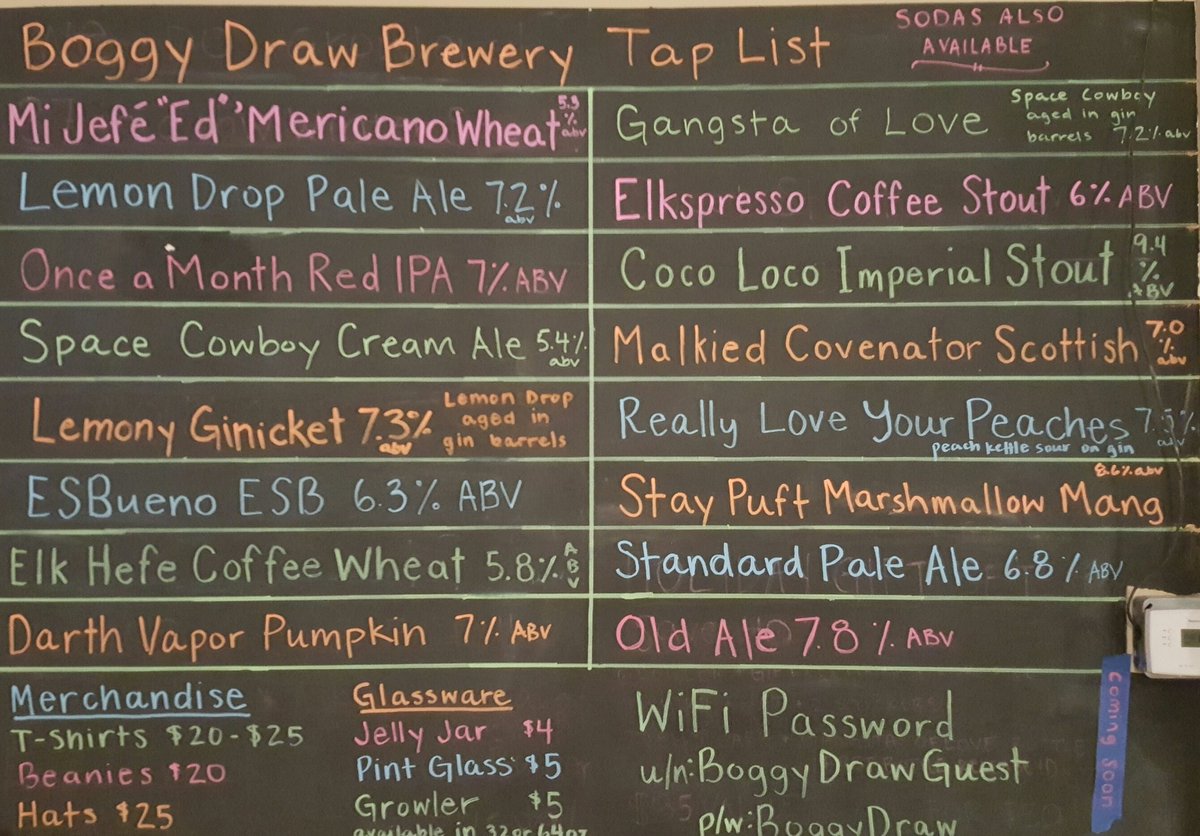 Boggy Draw Brewery Tap List
SODAS ALSO
AVAILABLE
Mi Jefé "Ed" 'Mericano Wheat 5.9 % abv
Lemon Drop Pale Ale 7.2% abv
Once a Month Red IPA 7% ABV
Space Cowboy Cream Ale 5.4% abv
Lemony Ginicket 7.3% abv
Lemon Drop
aged in
gin barrels
ESBueno ESB 6.3% ABV
Elk Hefe Coffee Wheat 5.8% ABV
Darth Vapor Pumpkin 7% ABV
Gangsta of Love
Space Cowboy
aged in gin
barrels 7.2% abv
Elkspresso Coffee Stout 6% ABV
Coco Loco Imperial Stout 9.4 % ABV
Malkied Covenator Scottish 7.0 % abv
Really Love Your Peaches 7.5% abv
peach kettle sour on gin
8.6% abv
Stay Puft Marshmallow Mang
Standard Pale Ale 6.8% ABV
Old Ale 7.8% ABV
Merchandise
T-shirts $20-$25
Beanies $20
Hats $25
Glassware
Jelly Jar $4
Pint Glass $5
Growler $5
available in 32 or 64 oz
WiFi Password
u/n: BoggyDrawGuest
p/w: BoggyDraw
Coming Soon